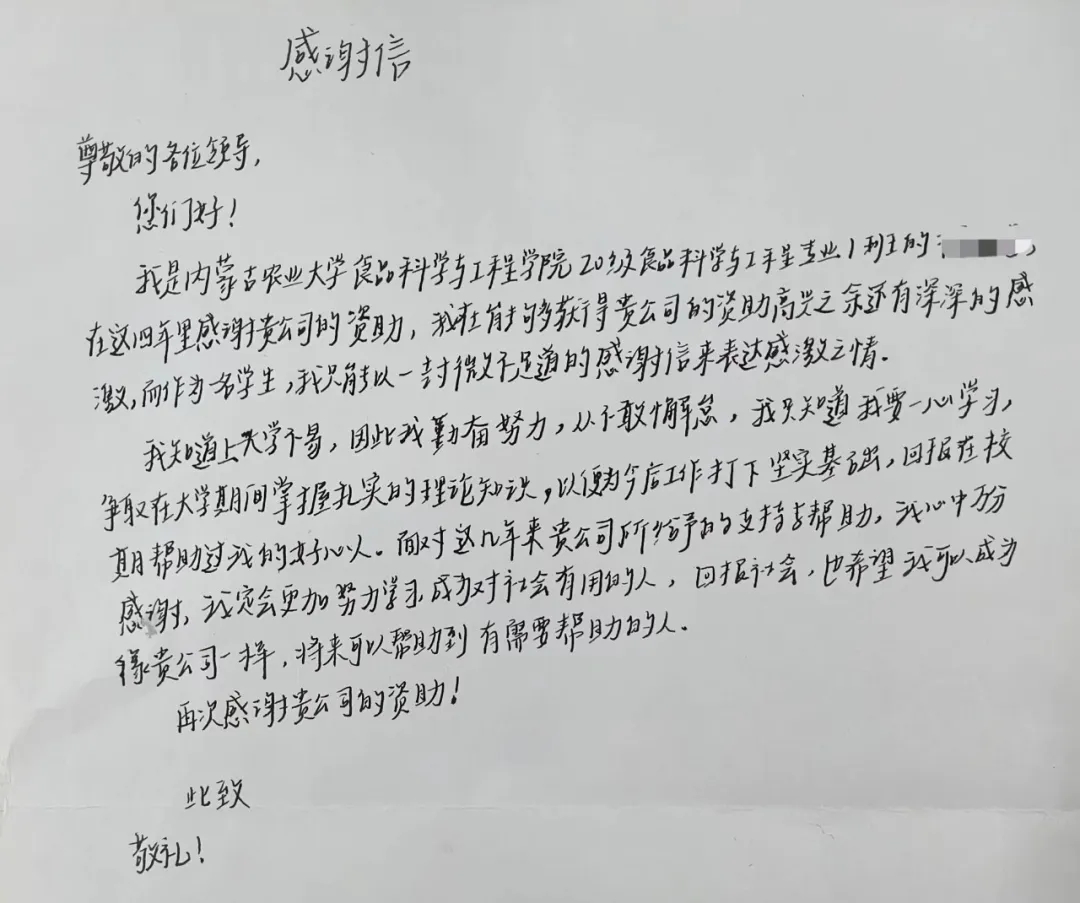 感谢信
尊敬的各位领导,
您们好!
我是内蒙古农业大学食品科学与工程学院20级食品科学与工程专业1班的
在这四年里感谢贵公司的资助,我在能够获得贵公司的资助高兴之余还有深深的感
激,而作为一名学生,我只能以一封微不足道的感谢信来表达感激之情.
我知道上大学不易,因此我勤奋努力,从不敢懈怠,我只知道我要一心学习,
争取在大学期间掌握扎实的理论知识,以便为今后工作打下坚实基础,回报在校
期帮助过我的好心人.面对这几年来贵公司所给予的支持与帮助,我心中万份
感谢,我定会更加努力学习成为对社会有用的人,回报社会,也希望我可以成为
像贵公司一样,将来可以帮助到有需要帮助的人.
再次感谢贵公司的资助!
此致
敬礼!